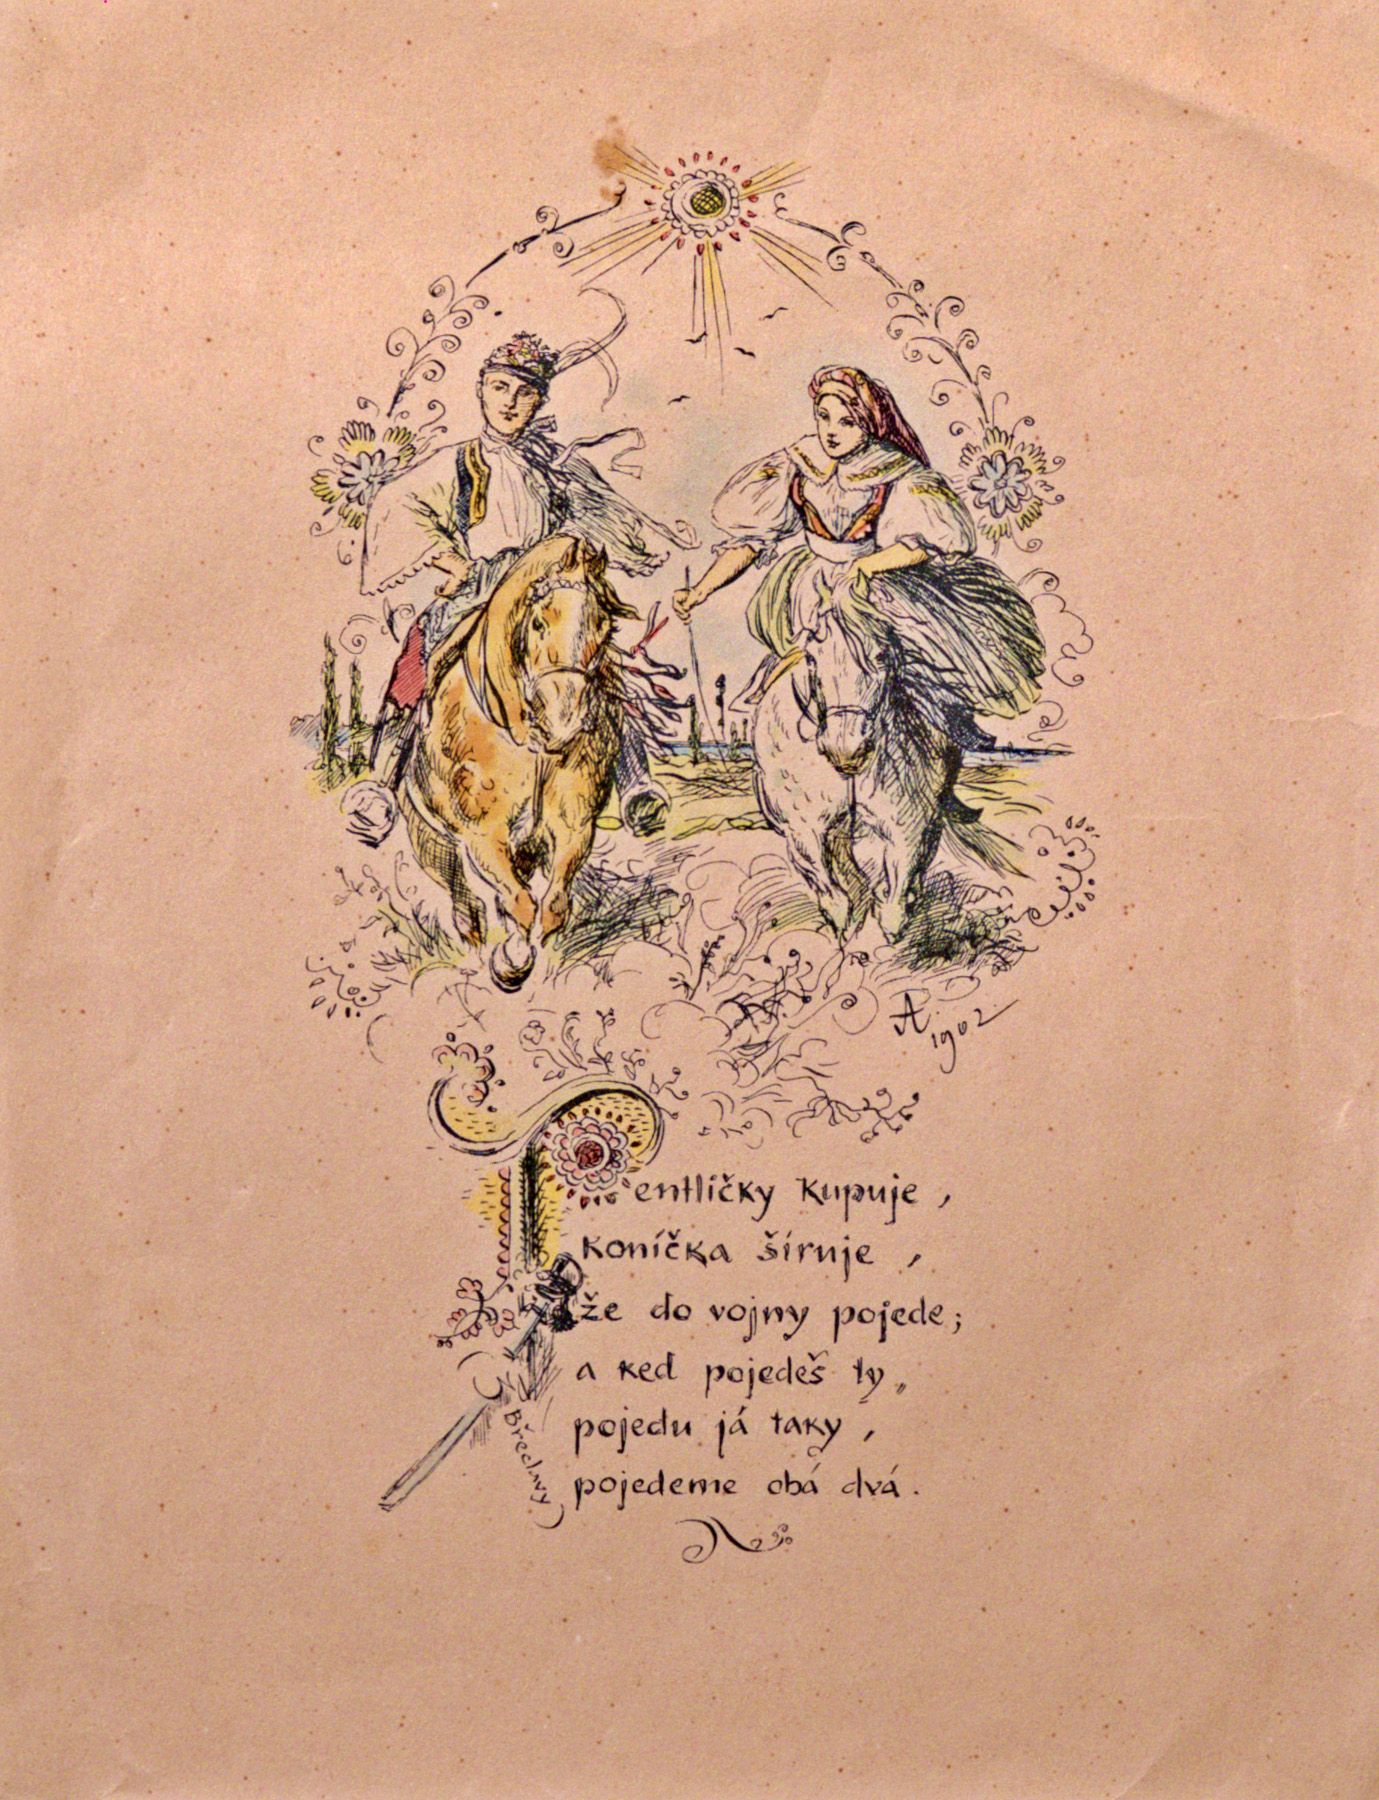 A 1902
Fentličky kupuje,
koníčka šíruje,
že do vojny pojede;
a ked pojedeš ty,
pojedu já taky,
pojedeme obá dvá.